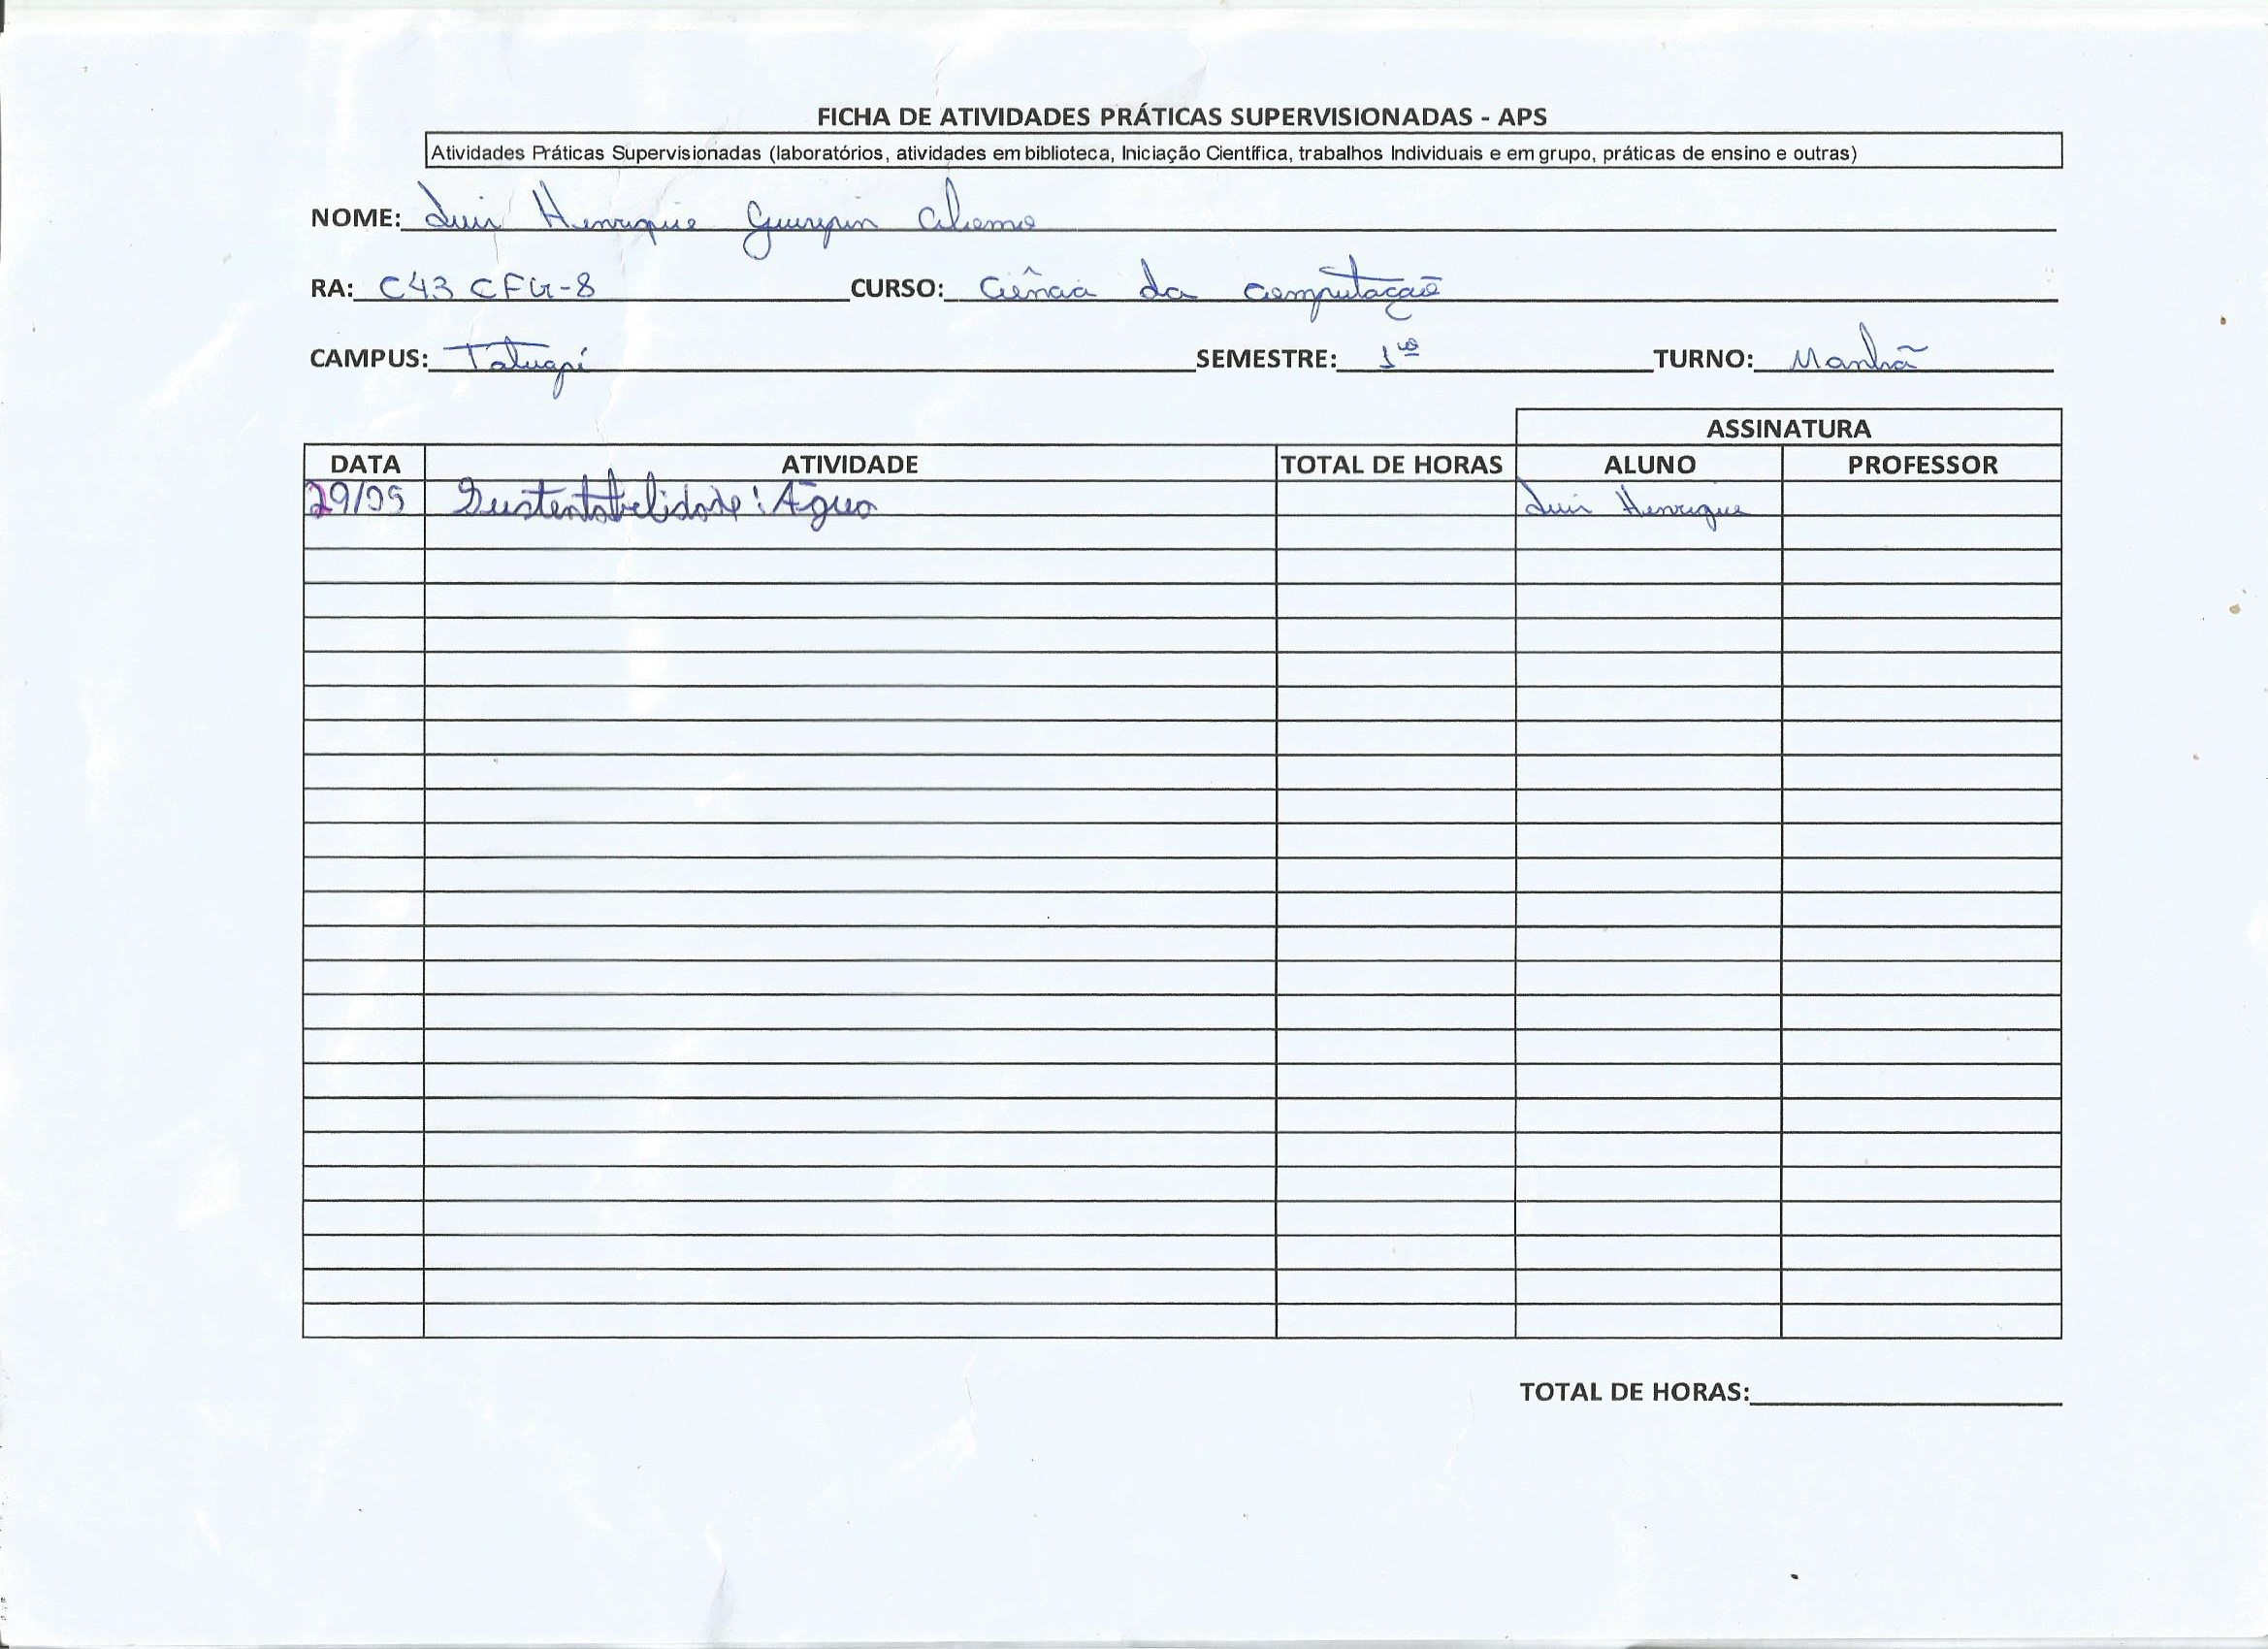 FICHA DE ATIVIDADES PRÁTICAS SUPERVISIONADAS - APS
Atividades Práticas Supervisionadas (laboratórios, atividades em biblioteca, Iniciação Científica, trabalhos Individuais e em grupo, práticas de ensino e outras)
NOME: Luis Henrique
RA: C43CFG-8 CURSO: Ciência da computação
CAMPUS: Tatuapé SEMESTRE: 1º TURNO: Manhã
ASSINATURA
DATA ATIVIDADE TOTAL DE HORAS ALUNO PROFESSOR
29/05 Sustentabilidade: Água Luis Henrique
TOTAL DE HORAS: